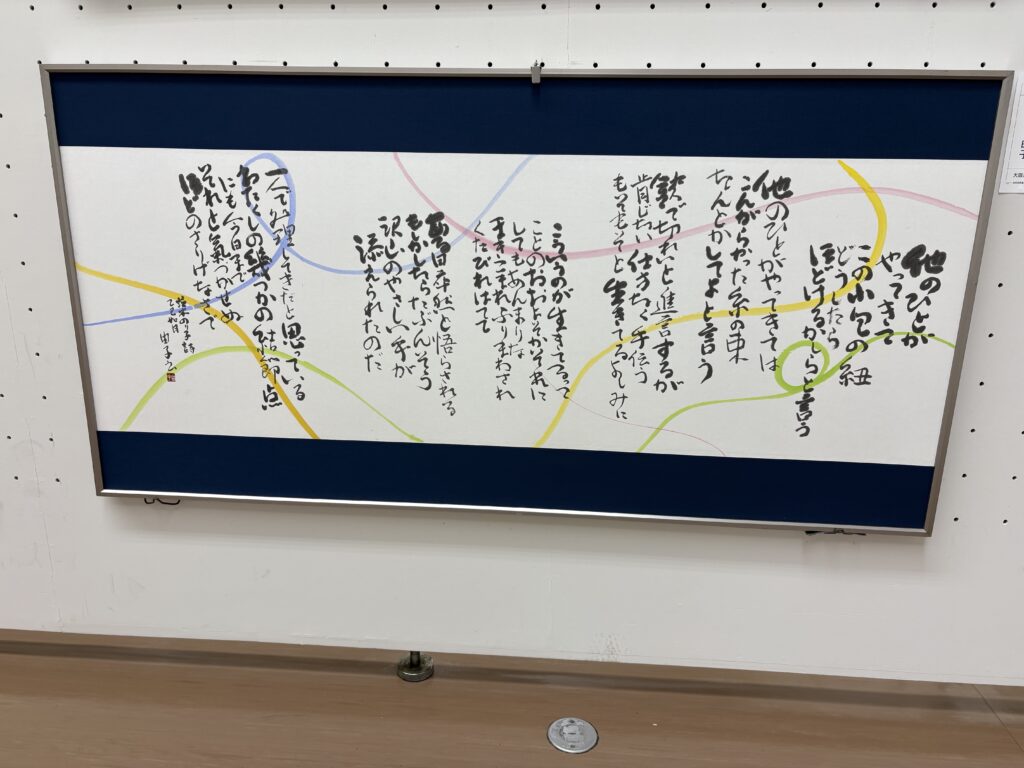 他のひとが
やってきて
この小包の紐
どうしたら
ほどけるかしらと言う
他のひとがやってきては
こんがらかった糸の束
なんとかしてよと言う
鋏で切れいと進言するが
肯じない仕方なく手伝う
もそもそと生きてるよしみに
こういうのが生きてるって
ことのおおよそかそれに
してもあんまりな
まきこまれふりまわされ
くたびれはてて
ある日卒然と悟らされる
もしかしたらたぶんそう
沢山のやさしい手が
添えられたのだ
一人で処理してきたと思っている
わたくしの幾つかの結節点
にも今日まで
それと氣づかせぬ
ほどのさりげなさで
茨木のり子詩